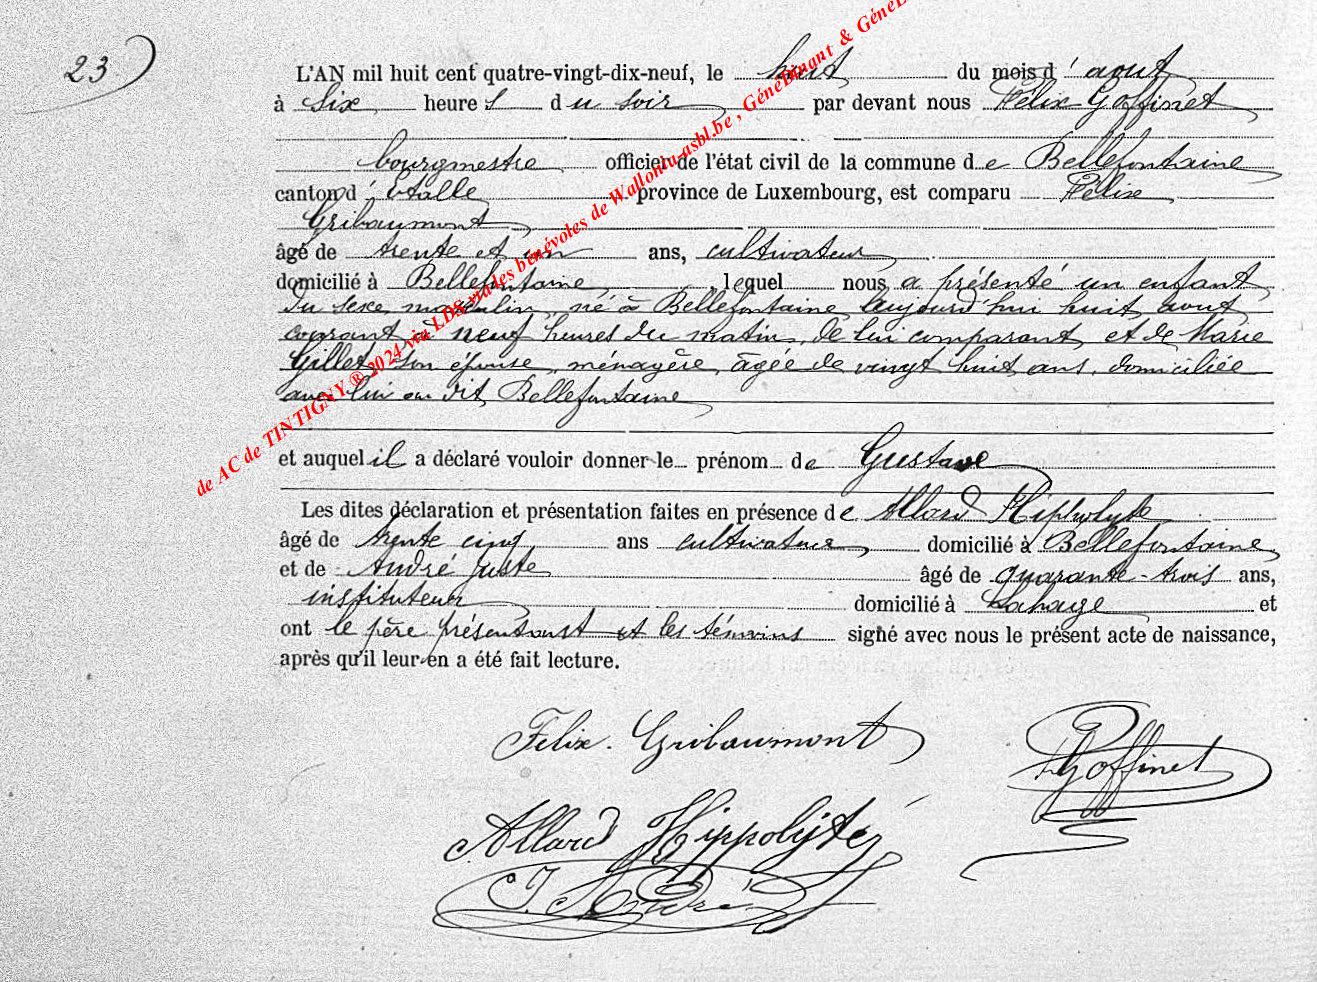 23
L'AN mil huit cent quatre-vingt-dix-neuf, le huit du mois d'août
à Six heures du soir par devant nous Félix Goffinet
bourgmestre officier de l'état civil de la commune de Bellefontaine
canton d'Etalle province de Luxembourg, est comparu Félix
Gribaumont
âgé de trente et un ans, cultivateur
domicilié à Bellefontaine, lequel nous a présenté un enfant
du sexe masculin, né à Bellefontaine aujourd'hui huit août
courant à neuf heures du matin, de lui comparant et de Marie
Gillet son épouse, ménagère, âgée de vingt huit ans, domiciliée
avec lui au dit Bellefontaine
et auquel il a déclaré vouloir donner le prénom de Gustave
Les dites déclaration et présentation faites en présence de Allard Hipholyte
âgé de trente cinq ans cultivateur, domicilié à Bellefontaine
et de André Juste âgé de quarante-trois ans,
instituteur domicilié à Lahage et
ont le père présentant et les témoins signé avec nous le présent acte de naissance,
après qu'il leur en a été fait lecture.
Felix. Gribaumont
Goffinet
Allard Hippolyte
J. André
de AC de TINTIGNY ® 2024 via LDS via les bénévoles de Wallonia-asbl.be , GénéDinant & GénéL